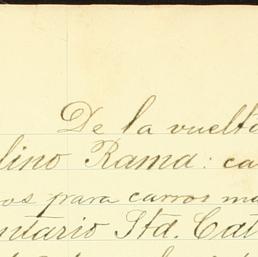 De la vuelta
lino Rama: ca
os para carros ma
ntario Sta. Cat